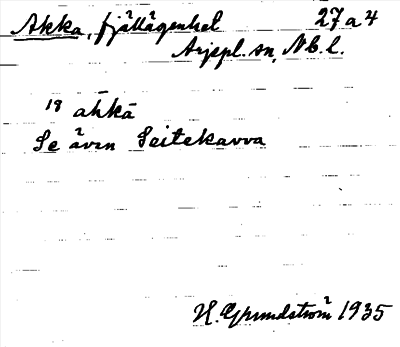 Akka, fjällägenhet 27 a 4
Arjepl. sn, Nb. l.
18 ahkā
Se även Seitekavva
H. Grundström 1935